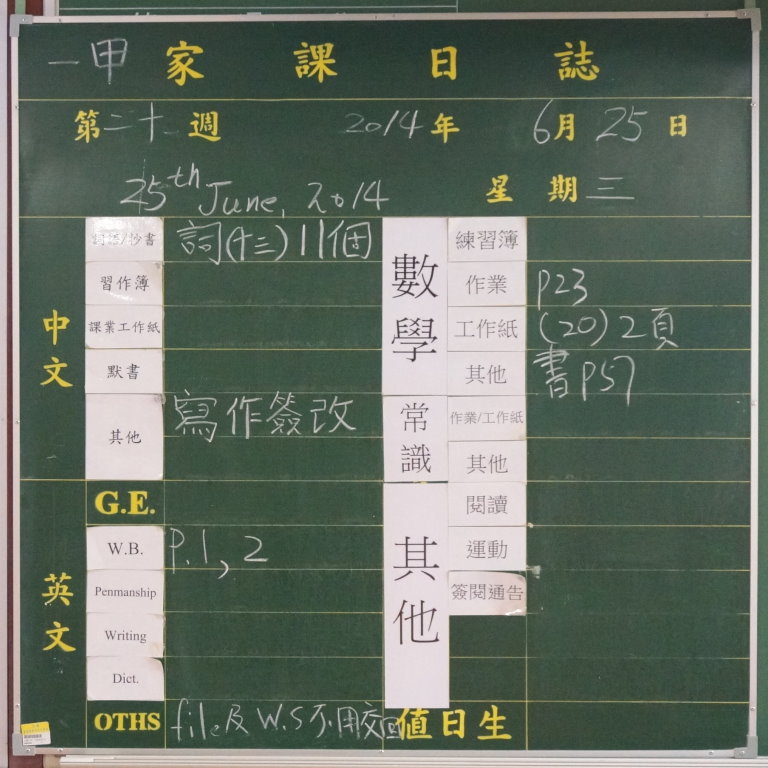 一甲 家課日誌
第二十 週 2014年 6月25日
25th June, 2014 星期三
中文
詞語/抄書 詞(十三)11個
習作簿
課業工作紙
默書
其他 寫作簽改
英文
G.E.
W.B. P.1, 2
Penmanship
Writing
Dict.
OTHS file及W.S不用交回
數學
練習簿
作業 P23
工作紙 (20)2頁
其他 書P57
常識
作業/工作紙
其他
其他
閱讀
運動
簽閱通告
值日生